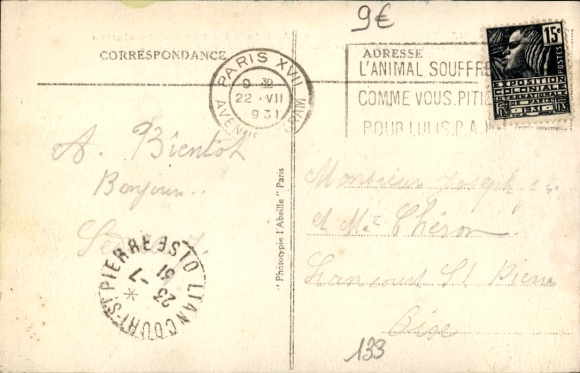 9€
CORRESPONDANCE
ADRESSE
PARIS XVII
9 30
22 · VII
931
AVENUE
L'ANIMAL SOUFFRE
COMME VOUS. PITIÉ
POUR LUI. (S.P.A.)
15c
POSTES
EXPOSITION
COLONIALE
INTERNATIONALE
DE PARIS
1931
A. Bientôt
Bonjour..
Monsieur Joseph
et Me Théron
Liancourt St Pierre
Oise
LIANCOURT-ST PIERRE OISE
23 - 7
31
"Phototypie l'Abeille" Paris
133